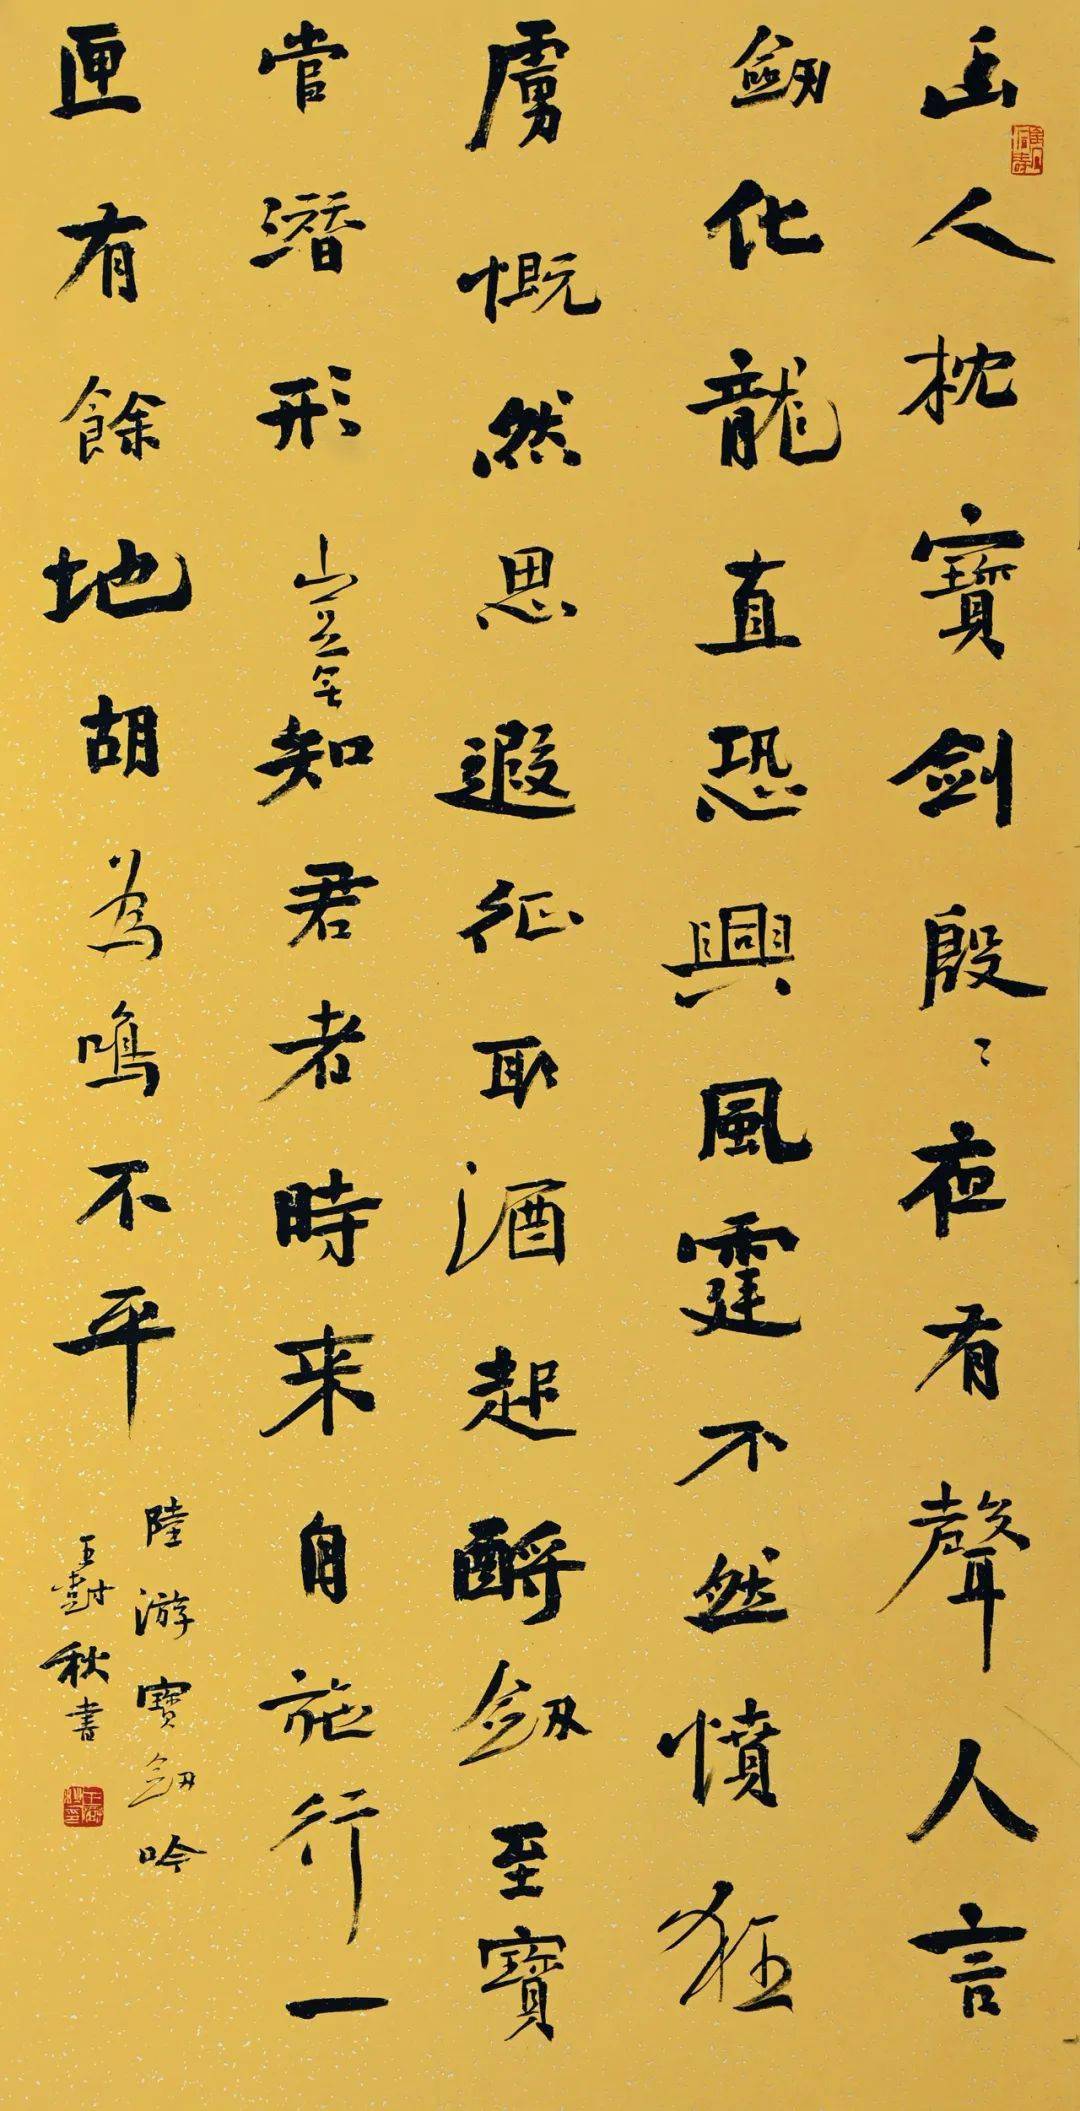 幽人枕寶劍殷〻夜有聲人言
劒化龍直恐興風霆不然憤狂
虜慨然思遐征取酒起酹劒至寶
當潛形豈无知君者時来自施行一
匣有餘地胡為鳴不平
陸游寶劒吟
王樹秋書